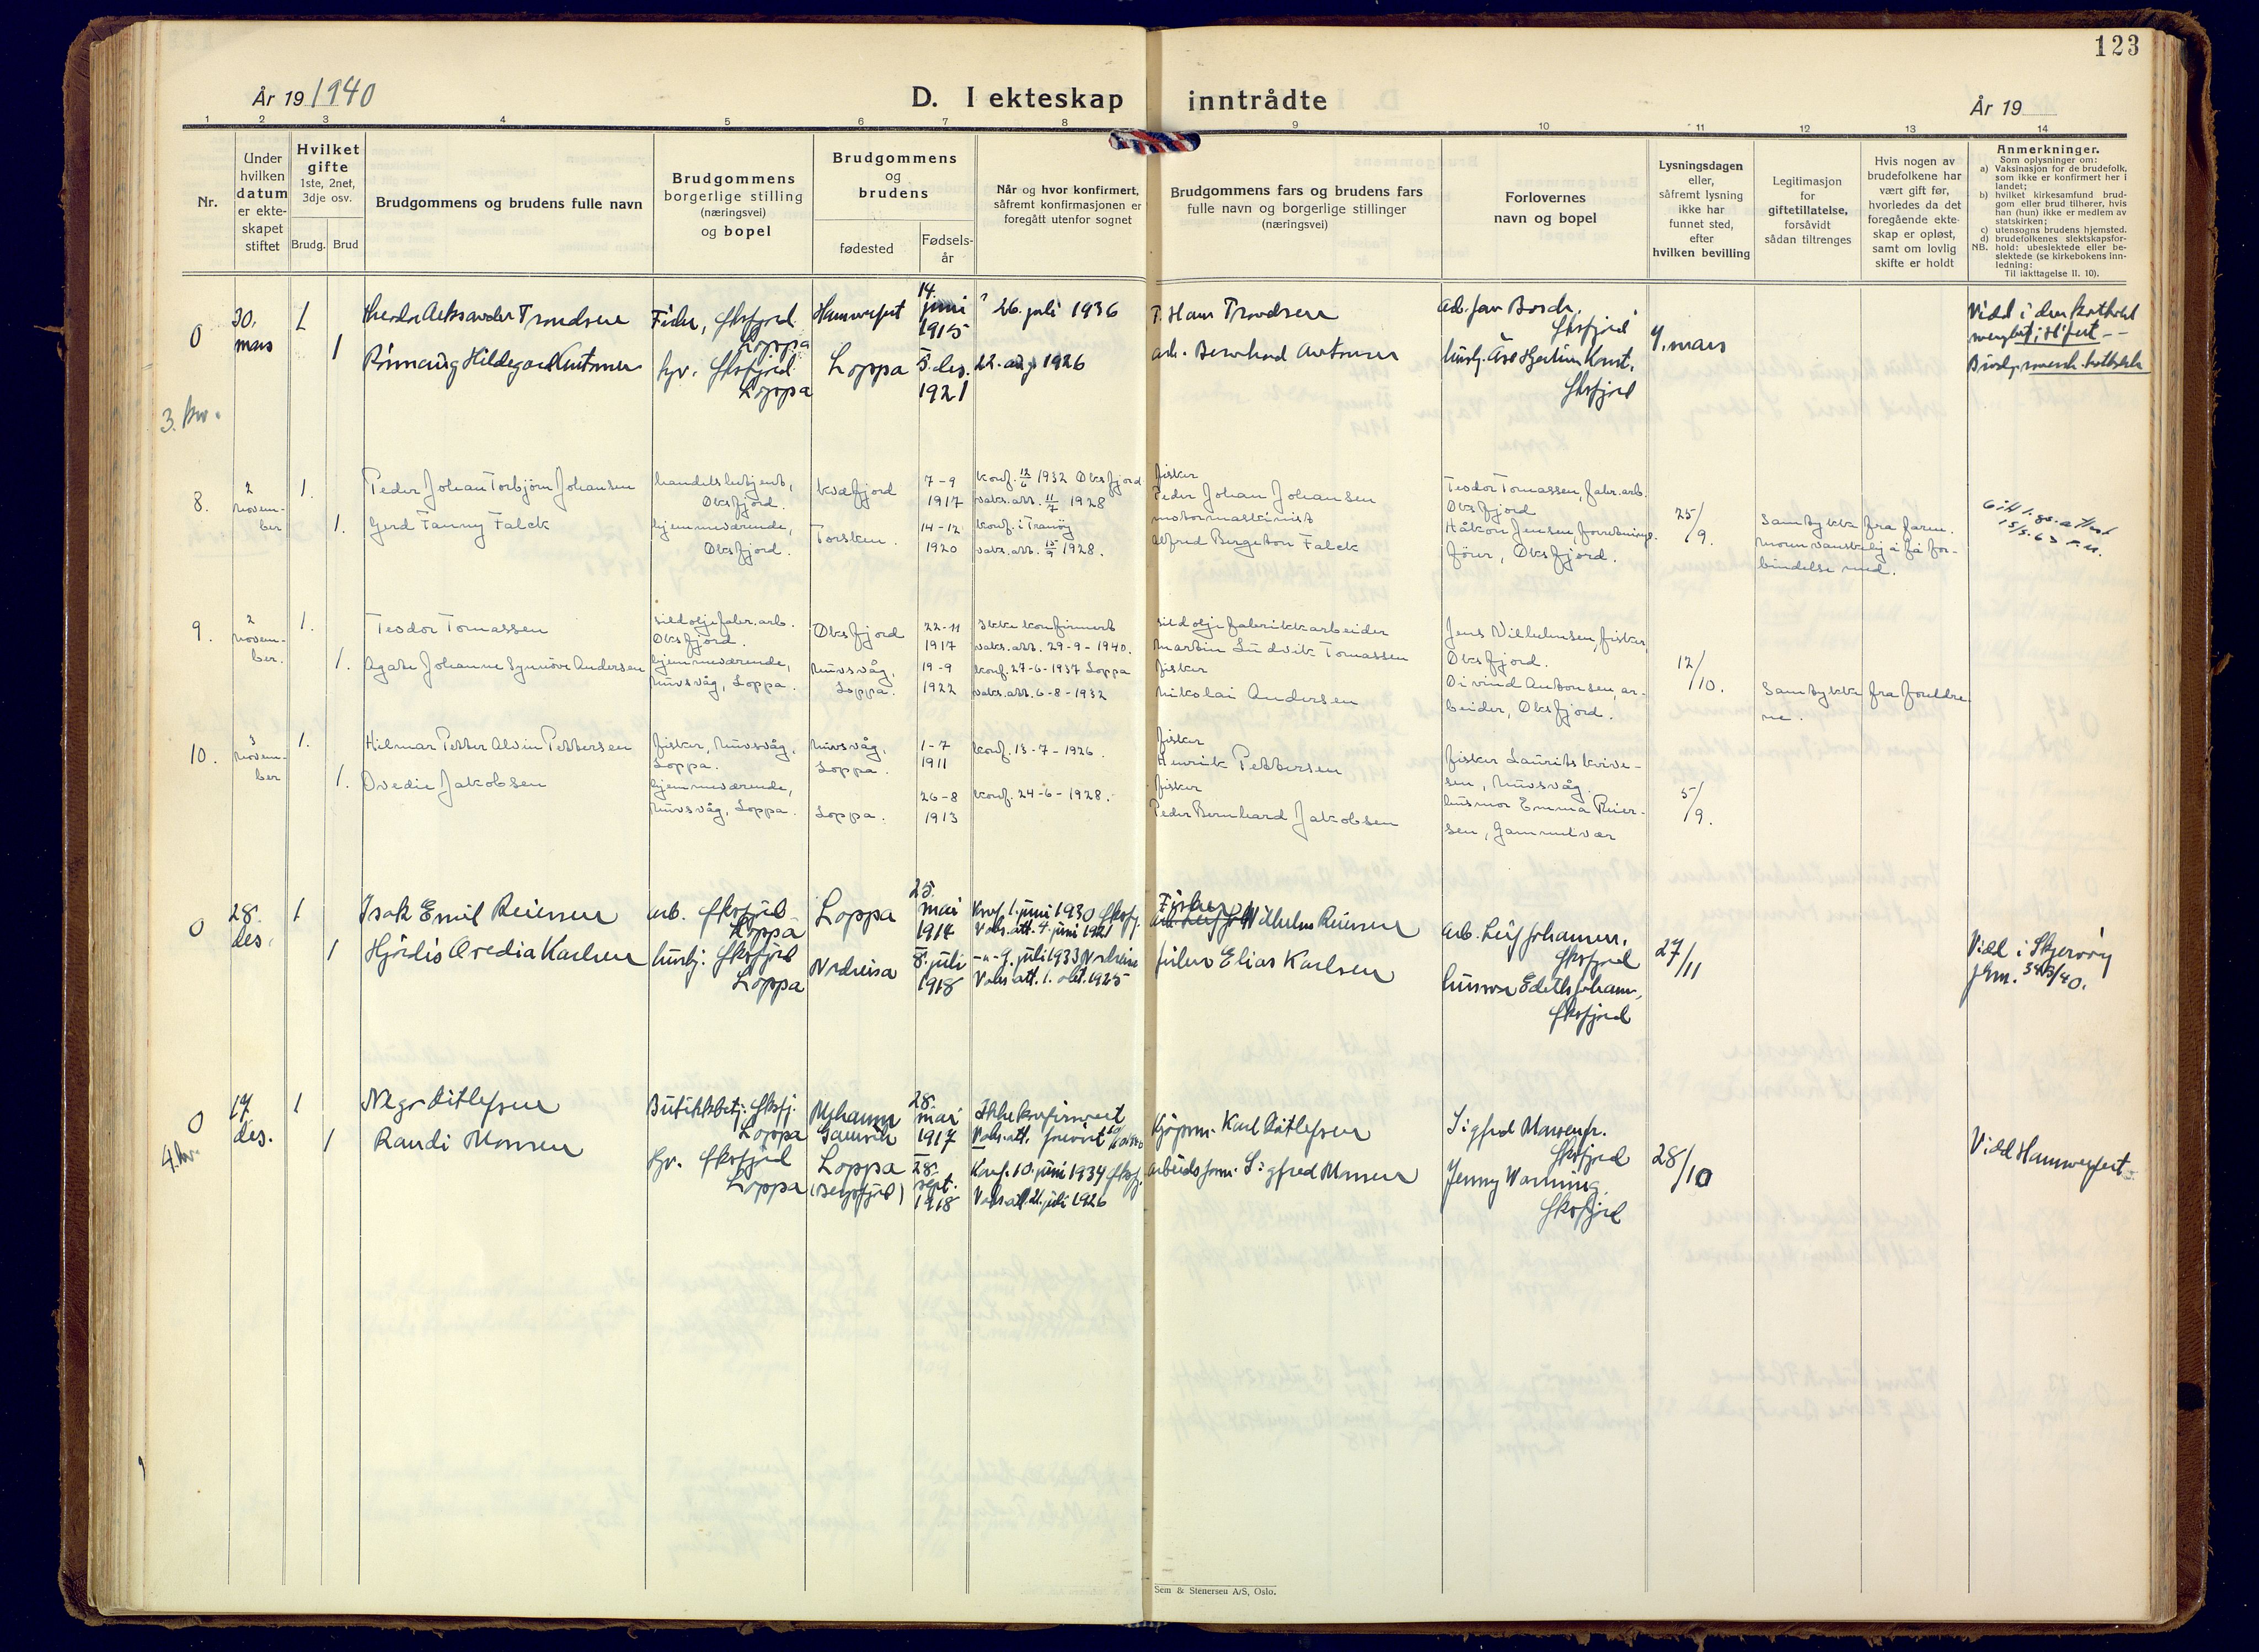 123
År 19 1940
D. I ekteskap inntrådte
År 19
1 2 3 4 5 6 7 8 9 10 11 12 13 14
Nr.
Under
hvilken
datum
er ekte-
skapet
stiftet
Hvilket
gifte
1ste, 2net,
3dje osv.
Brudg. Brud
Brudgommens og brudens fulle navn
Brudgommens
borgerlige stilling
(næringsvei)
og bopel
Brudgommens
og
brudens
fødested
Fødsels-
år
Når og hvor konfirmert,
såfremt konfirmasjonen er
foregått utenfor sognet
Brudgommens fars og brudens fars
fulle navn og borgerlige stillinger
(næringsvei)
Forlovernes
navn og bopel
Lysningsdagen
eller,
såfremt lysning
ikke har
funnet sted,
efter
hvilken bevilling
Legitimasjon
for
giftetillatelse,
forsåvidt
sådan tiltrenges
Hvis nogen av
brudefolkene har
vært gift før,
hvorledes da det
foregående ekte-
skap er opløst,
samt om lovlig
skifte er holdt
Anmerkninger.
Som oplysninger om:
a) Vaksinasjon for de brudefolk,
som ikke er konfirmert her i
landet;
b) hvilket kirkesamfund brud-
gom eller brud tilhører, hvis
han (hun) ikke er medlem av
statskirken;
c) utensogns brudens hjemsted.
d) brudefolkenes slektskapsfor-
NB. hold: ubeslektede eller be-
slektede (se kirkebokens inn-
ledning:
Til iakttagelse II. 10).
0
30.
mars
1
Trondsen
Hammerfest
14.
juni
1915
26. juli 1936
Hans Trondsen
1
Hildegard
Loppa
Loppa
5. des.
1921
22. aug 1926
arb. Bernhard
4. mars
3. kv.
8.
2
novem-
ber
1.
Peder Johan Torbjørn Johansen
handelsbetjent,
Øksfjord.
Kvæfjord
7-9
1917
konf. 12/6 1932 Øksfjord
vaks.att. 11/7 1928
fisker
Peder Johan Johansen
Teodor Tomassen, fabr.arb.
Øksfjord
1.
Gerd Fanny Falck
hjemmeværende,
Øksfjord.
Torsken.
14-12
1920
konf. i Tranøy
vaks.att. 15/9 1928.
motormaskinist
Alfred Bergeton Falck
Håkon Jensen, forretnings-
fører, Øksfjord.
25/9.
Samtykke fra faren.
moren vanskelig å få for-
bindelse med.
9.
2
novem-
ber.
1.
Teodor Tomassen
sildoljefabr.arb.
Øksfjord.
Øksfjord
22-11
1917
Ikke konfirmert
vaks.att. 29-9-1940.
sildoljefabrikkarbeider
Martin Ludvik Tomassen
Jens Vilhelmsen, fisker,
Øksfjord.
1.
Agate Johanne Synnøve Andersen
hjemmeværende,
Nuvsvåg, Loppa.
Nuvsvåg,
Loppa.
19-9
1922
konf. 27-6-1937 Loppa
vaks.att. 6-8-1932
fisker
Nikolai Andersen
Øivind Antonsen, ar-
beider, Øksfjord.
12/10.
Samtykke fra foreldre-
ne.
10.
3
novem-
ber
1.
Hilmar Petter Alvin Pettersen
fisker, Nuvsvåg,
Loppa.
Nuvsvåg,
Loppa.
1-7
1911
konf. 13-7-1926.
fisker
Henrik Pettersen
fisker Laurits Kvive-
sen, Nuvsvåg.
1.
Ovedie Jakobsen
hjemmeværende,
Nuvsvåg, Loppa.
Loppa.
26-8
1913
konf. 24-6-1928.
fisker
Peder Bernhard Jakobsen
husmor Emma Reier-
sen, Gammelvær
5/9.
0
28.
des.
1
Isak Emil Reiersen
arb. Øksfjord
Loppa
Loppa
25.
mai
1914
Konf. 1. juni 1930 Øksfj.
Vaks.att. 4. juni 1921
Fisker
Vilhelm Reiersen
arb. Leif Johansen,
Øksfjord
1
Hjördis Ovedia Karlsen
Øksfjord
Loppa
Nordreisa
8. juli
1918
-"- 9. juli 1933 Nordreisa
Vaks att. 1. okt. 1925
fisker Elias Karlsen
husmor Edith Johans.,
Øksfjord
27/11
Viet i Skjervøy
0
17
des.
1
Ditlefsen
Butikkbetj. Øksfj.
Loppa
Mehamn
Gamvik
28.
mai
1917
Ikke konfirmert
Vaks.att.
Kjøpm. Karl Ditlefsen
Øksfjord
4. kv.
1
Randi Monsen
Øksfjord
Loppa
Loppa
(Bergsfjord)
28.
sept.
1918
Konf. 10. juni 1934 Øksfj.
Vaks att. 21. juli 1926
arbeidsform. Sigfred Monsen
Jenny Warming
Øksfjord
28/10
Viet Hammerfest
Sem & Stenersen A/S, Oslo.